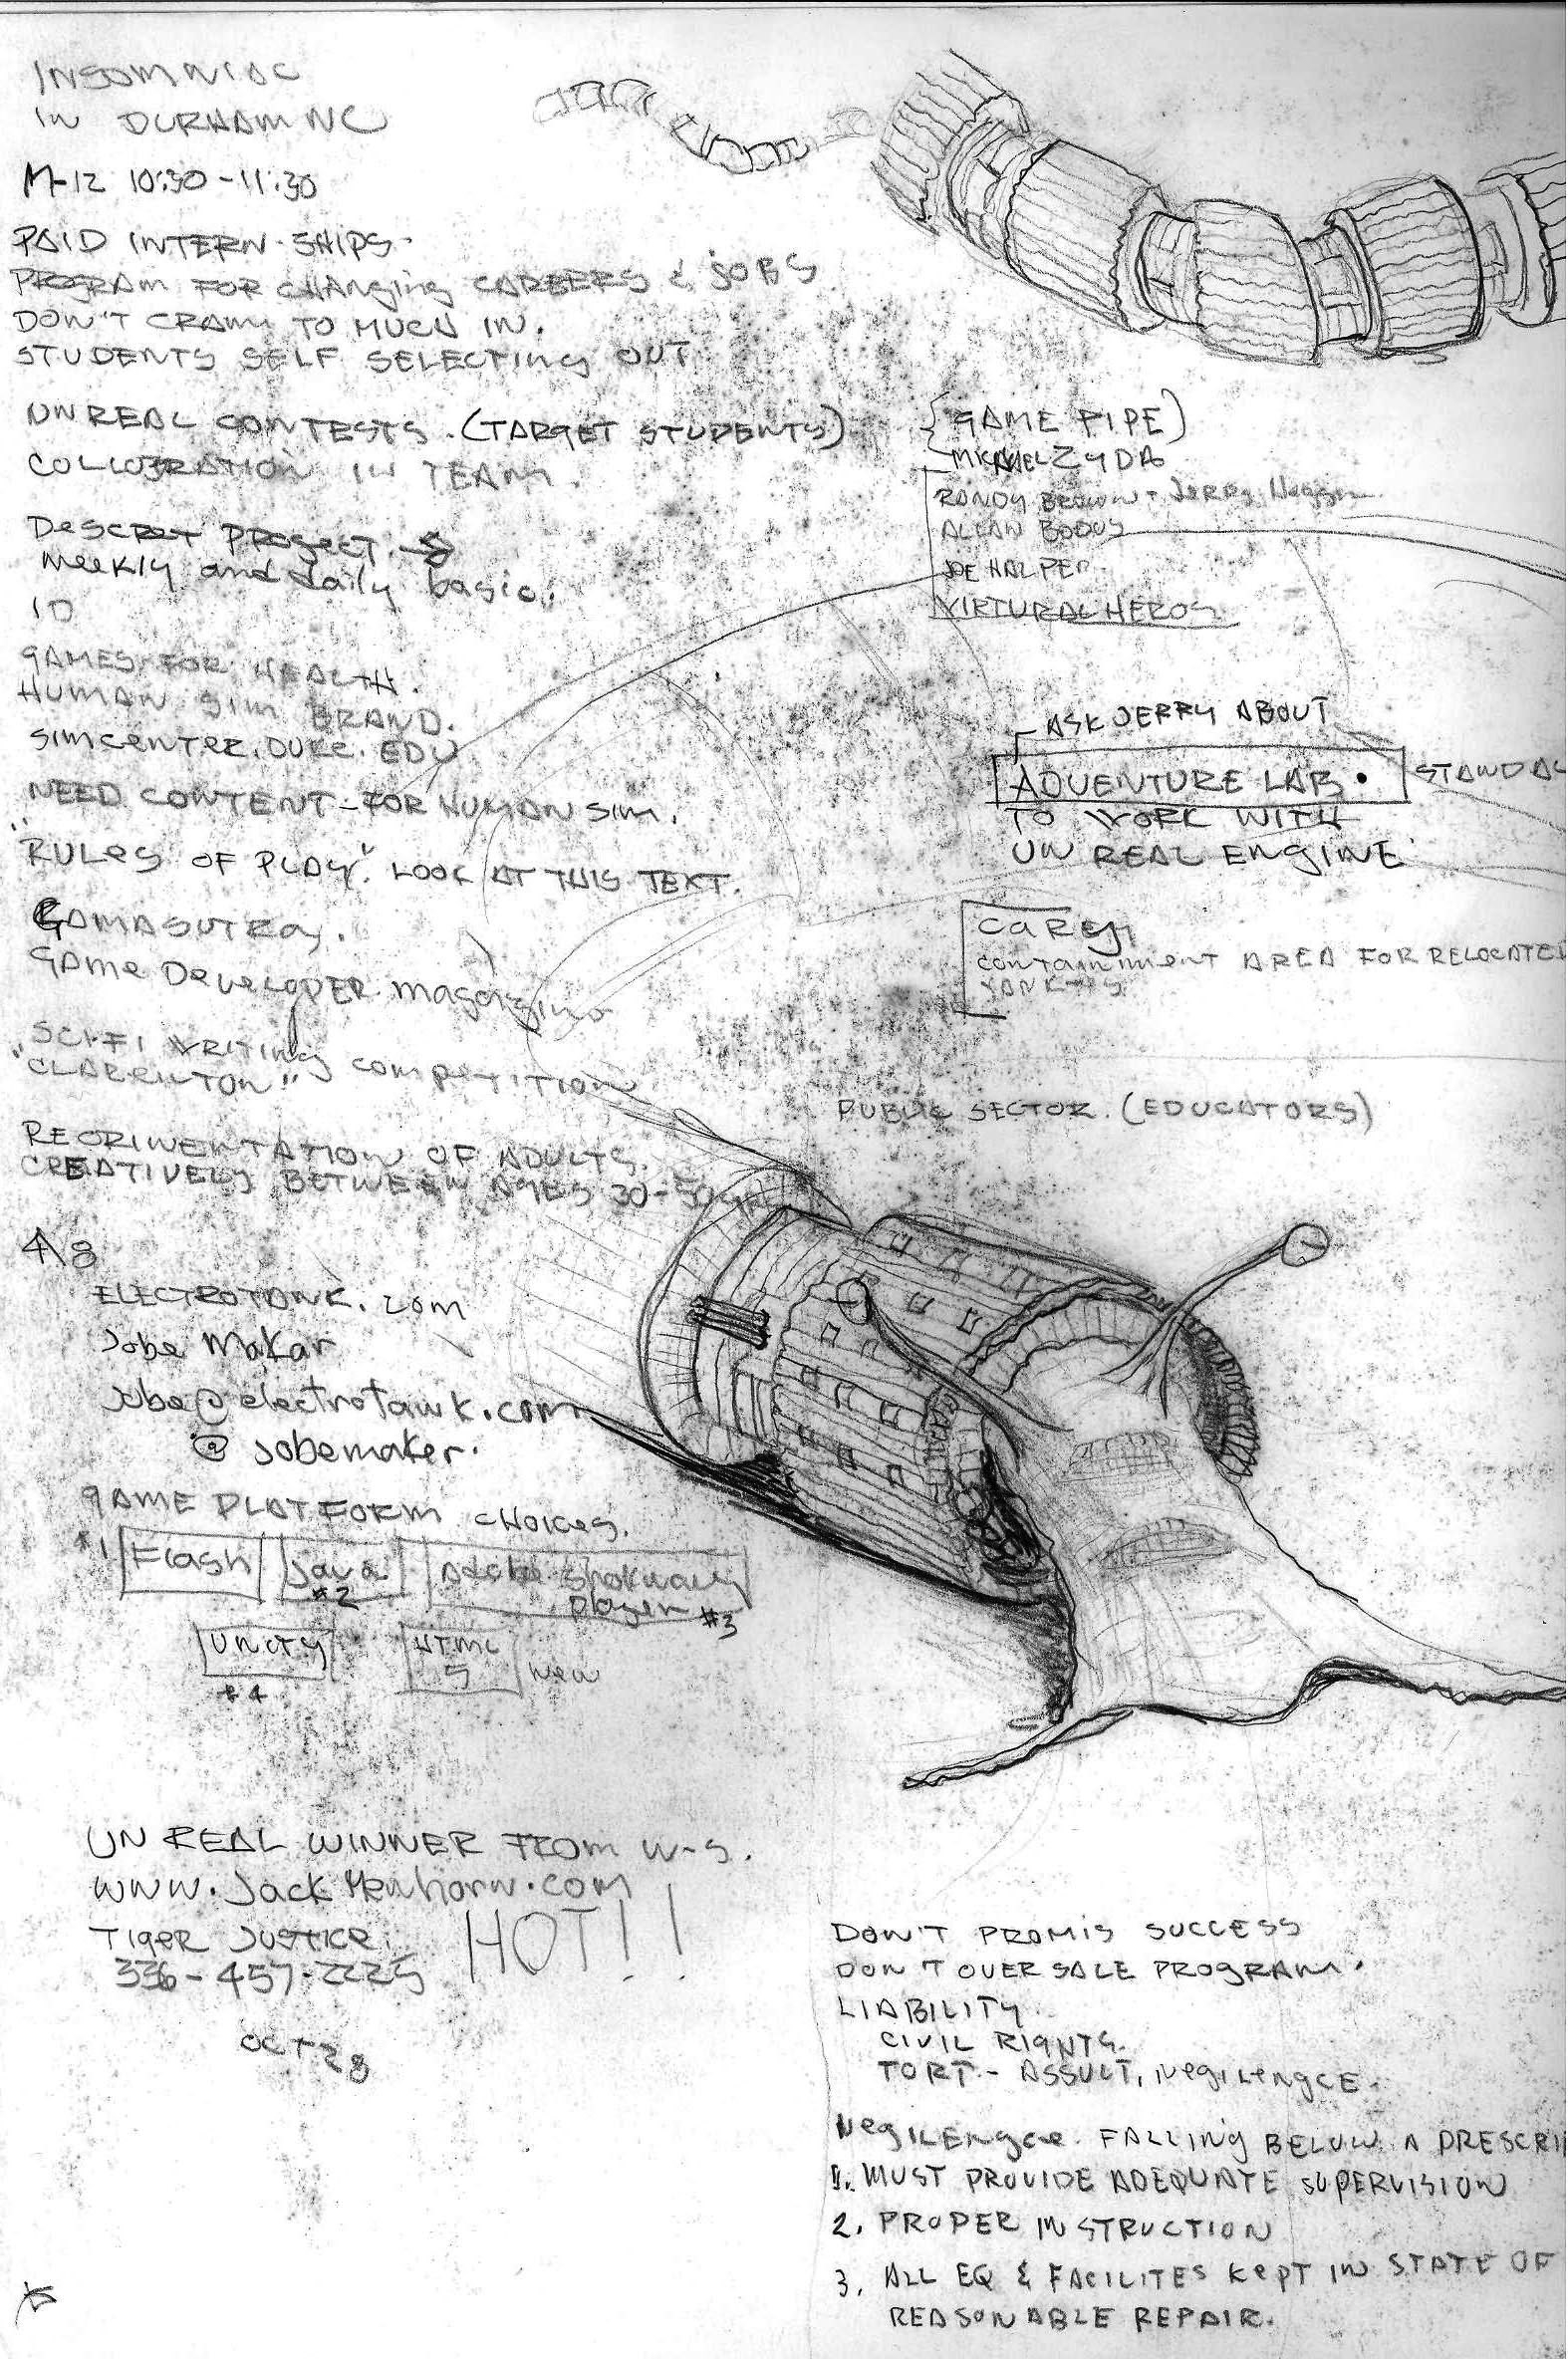 INSOMNIAC
IN DURHAM NC
M-12 10:30-11:30
PAID INTERN-SHIPS.
PROGRAM FOR CHANGING CAREERS & JOBS
DON'T CRAM TO MUCH IN.
STUDENTS SELF SELECTING OUT
UNREAL CONTESTS. (TARGET STUDENTS)
IN TEAM.
DESCRET PROJECT. →
weekly and daily basic.
10
GAMES FOR HEALTH.
HUMAN SIM BRAND.
SIMCENTER.DUKE.EDU
NEED CONTENT-FOR HUMAN SIM.
"RULES OF PLAY". LOOK AT THIS TEXT.
GAMASUTRA.
GAME DEVELOPER magazine
SCI-FI WRITING COMPETITION
REORINENTATION OF ADULTS.
CREATIVELY BETWEEN AGES 30-50
ELECTROTANK.COM
Jobe Makar
jobe@electrotank.com
@ jobemaker.
GAME PLATFORM CHOICES.
#1 Flash Java Adobe Shokwave
#2 player #3
UNITY HTML
5 new
#4
UN REAL WINNER FROM W-S.
www.JackMenhorn.com
TIGER JUSTICE.
336-457-2225
HOT!!
OCT 28
{GAME PIPE)
MICHAEL ZYDA
RANDY BROWN - JERRY
ALLAN
JOE HALPER
VIRTURAL HEROS
ASK JERRY ABOUT
ADVENTURE LAB.
TO WORK WITH
UN REAL ENGINE
CARY
CONTAINMENT AREA FOR RELOCATED
YANKEES
PUBLIC SECTOR. (EDUCATORS)
DON'T PROMIS SUCCESS
DON'T OVER SALE PROGRAM.
LIABILITY.
CIVIL RIGHTS.
TORT - ASSULT, NEGILENGCE.
NEGILENGCE. FALLING BELOW A PRESCRI
1. MUST PROVIDE ADEQUATE SUPERVISION
2. PROPER INSTRUCTION
3. ALL EQ & FACILITES KEPT IN STATE OF
REASONABLE REPAIR.